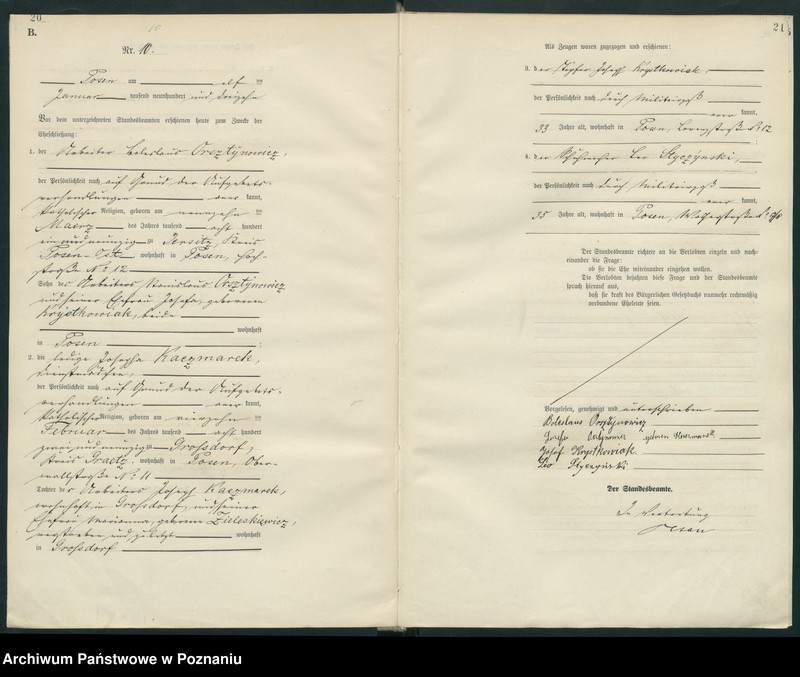 20
B.
Nr. 10.
Posen am elf ten
Januar tausend neunhundert und dreizehn
Vor dem unterzeichneten Standesbeamten erschienen heute zum Zwecke der
Eheschließung:
1. der Arbeiter Boleslaus Orsztynowicz,
der Persönlichkeit nach auf Grund der Aufgebots-
verhandlungen aner kannt,
katholischer Religion, geboren am neunzehn ten
Maerz des Jahres tausend acht hundert
ein und neunzig zu Jersitz, Kreis
Posen-Ost, wohnhaft in Posen,
straße No 12
Sohn des Arbeiters Stanislaus Orsztynowicz
und seiner Ehefrau Josefa, geborenen
Krystkowiak, beide
wohnhaft
in Posen ;
2. die ledige Josepha Kaczmarek,
Dienstmädchen,
der Persönlichkeit nach auf Grund der Aufgebots-
verhandlungen aner kannt,
katholischer Religion, geboren am vierzehn ten
Februar des Jahres tausend acht hundert
zwei und neunzig zu Grossdorf,
Kreis Graetz, wohnhaft in Posen, Ober-
wallstraße No 11
Tochter des Arbeiters Joseph Kaczmarek,
wohnhaft in Grossdorf, und seiner
Ehefrau Marianna, geborene Zieleskiewicz,
verstorben und zuletzt wohnhaft
in Grossdorf
21
Als Zeugen waren zugezogen und erschienen:
3. der Töpfer Joseph Krystkowiak,
der Persönlichkeit nach durch Militairpaß
aner kannt,
33 Jahre alt, wohnhaft in Posen, No 12
;
4. der Schuhmacher Leo Styczynski,
der Persönlichkeit nach durch Militairpaß
aner kannt,
35 Jahre alt, wohnhaft in Posen,
Der Standesbeamte richtete an die Verlobten einzeln und nach-
einander die Frage:
ob sie die Ehe miteinander eingehen wollen.
Die Verlobten bejahten diese Frage und der Standesbeamte
sprach hierauf aus,
daß sie kraft des Bürgerlichen Gesetzbuchs nunmehr rechtmäßig
verbundene Eheleute seien.
Vorgelesen, genehmigt und unterschrieben
Boleslaus Orsztynowicz
geboren Kaczmarek
Josef Krystkowiak
Leo Styczynski
Der Standesbeamte.
In Vertretung
Archiwum Państwowe w Poznaniu